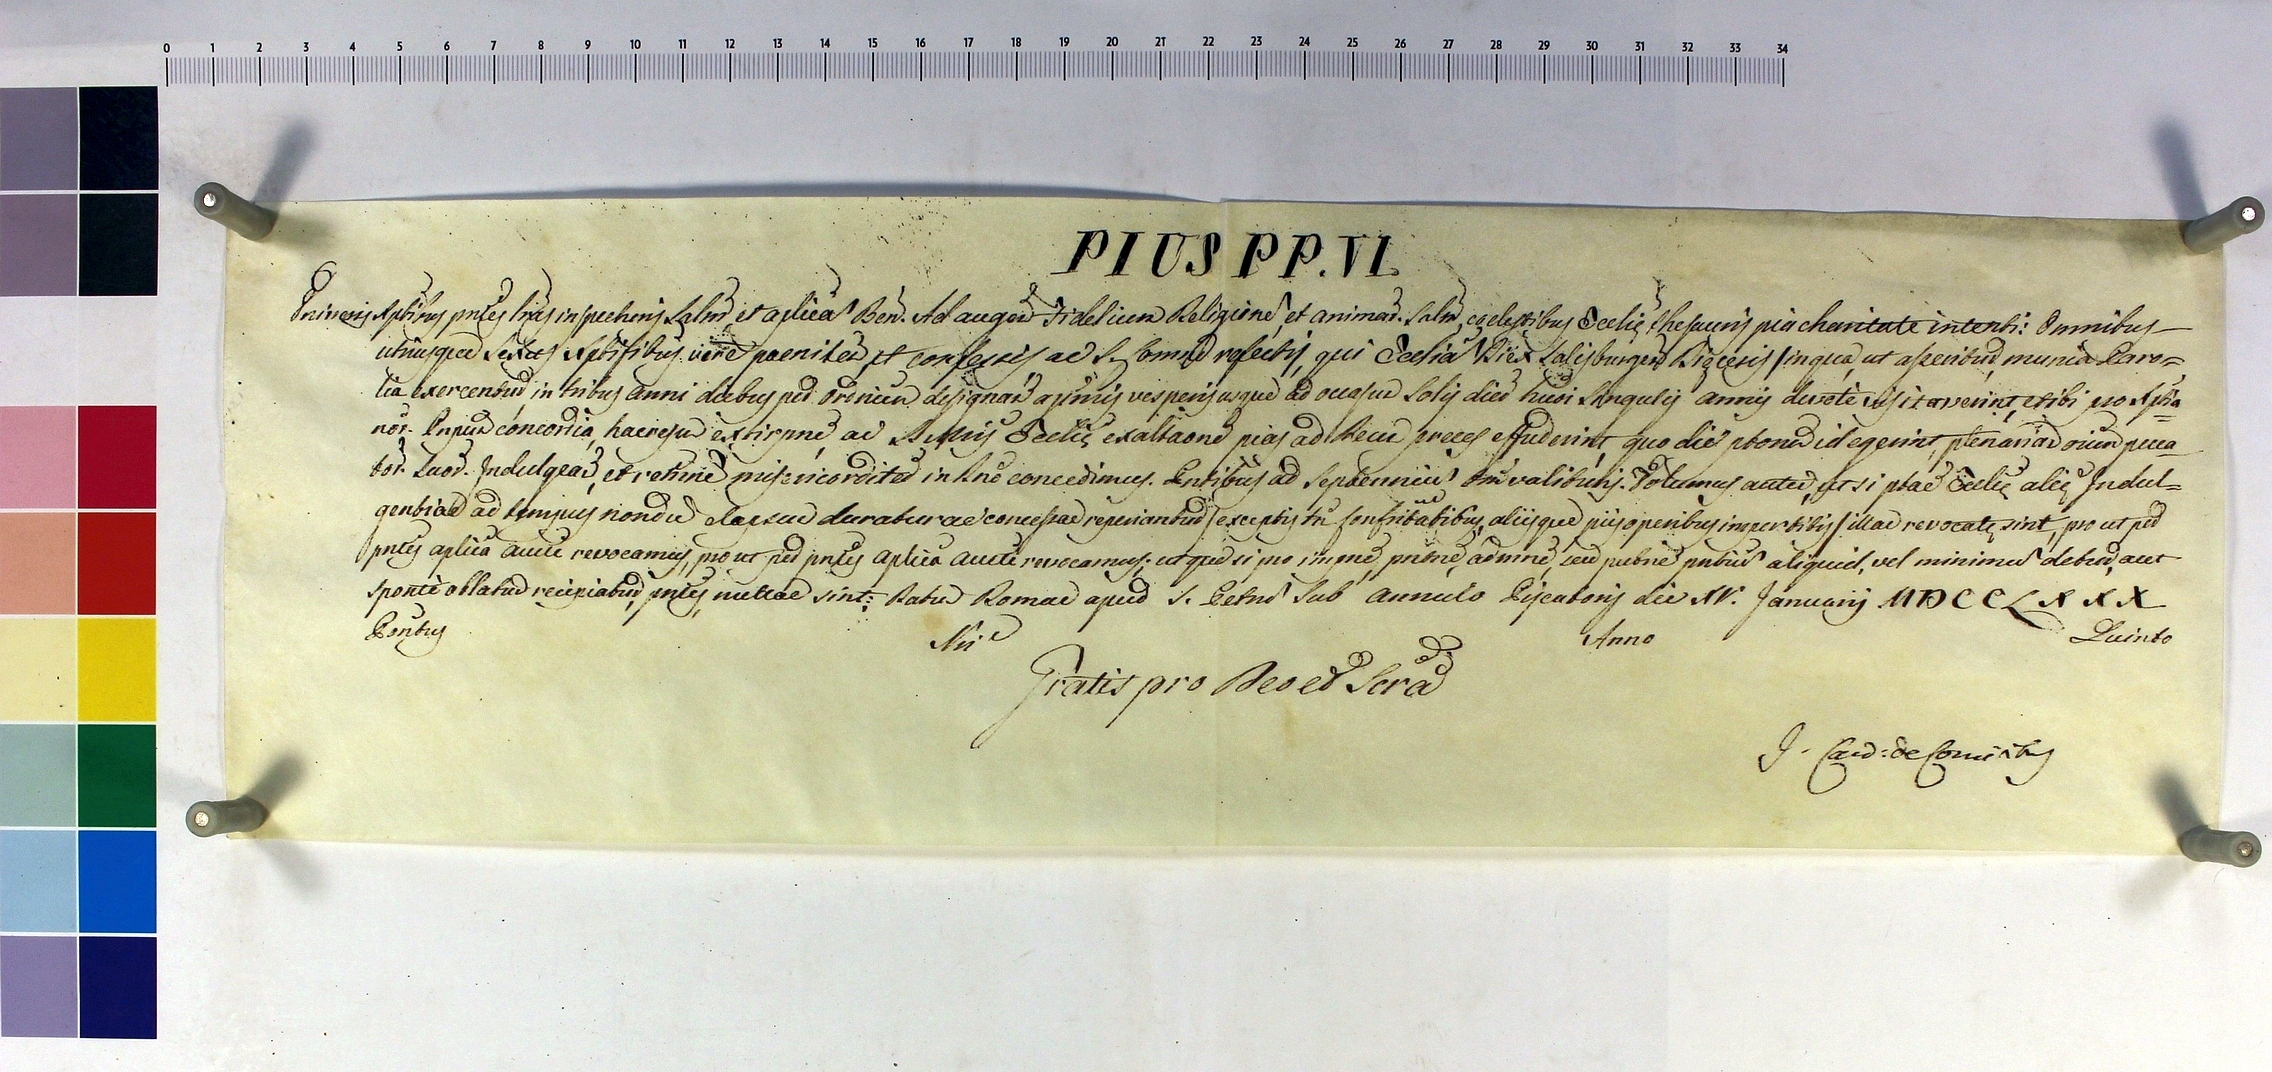 0 1 2 3 4 5 6 7 8 9 10 11 12 13 14 15 16 17 18 19 20 21 22 23 24 25 26 27 28 29 30 31 32 33 34
PIUS PP. VI.
Universis Xpifibus pntes lras inspecturis Salm et aplica Ben. Ad augen Fidelium Religione, et animar. Salm, coelestibus Ecclie thesauris pia charitate intenti: Omnibus
utriusque Sexus Xpifibus vere paeniten, et confessis ac S. Comne refectis, qui Ecclia Salisburgen Dioecesis / in qua, ut asseritur, munia Paro=
lia exercentur, in tribus anni diebus per Ordrium designan a primis vesperis usque ad occasu Solis dieru huoi Singulis annis devote visitaverint, et ibi pro Xpia=
nor. Pnpum concordia, haeresu extirpne, ac S. Mris Ecclie exaltaone pias ad Deu preces effuderint, quo die ptoru id egerint, plenariar oium pcca
tor. Suor. Indulgean, et remne misericordite in Dno concedimus. Pntibus ad Septenniu tm valituris. Volumus aute, ut si ptae Ecclie aliae Indul=
gentiae ad tempus nondu elapsum duraturae concessae reperiantur / exceptis tn Confritatibus, aliisque piis operibus impertitis / illae revocate sint, pro ut per
pntes aplica aucte revocamus, pro ut per pntes aplica aucte revocamus; utque si pro impne, pntne, admne, seu pubne pntiu aliquid, vel minimu detur, aut
sponte oblatu recipiatur, pntes nullae sint: Datu Romae apud S. Petru Sub Annulo Piscatoris die XV. Januarij MDCCLXXX
Pontus Nri Anno Quinto
Gratis pro Deo et Scra
J. Card: de Comitibus